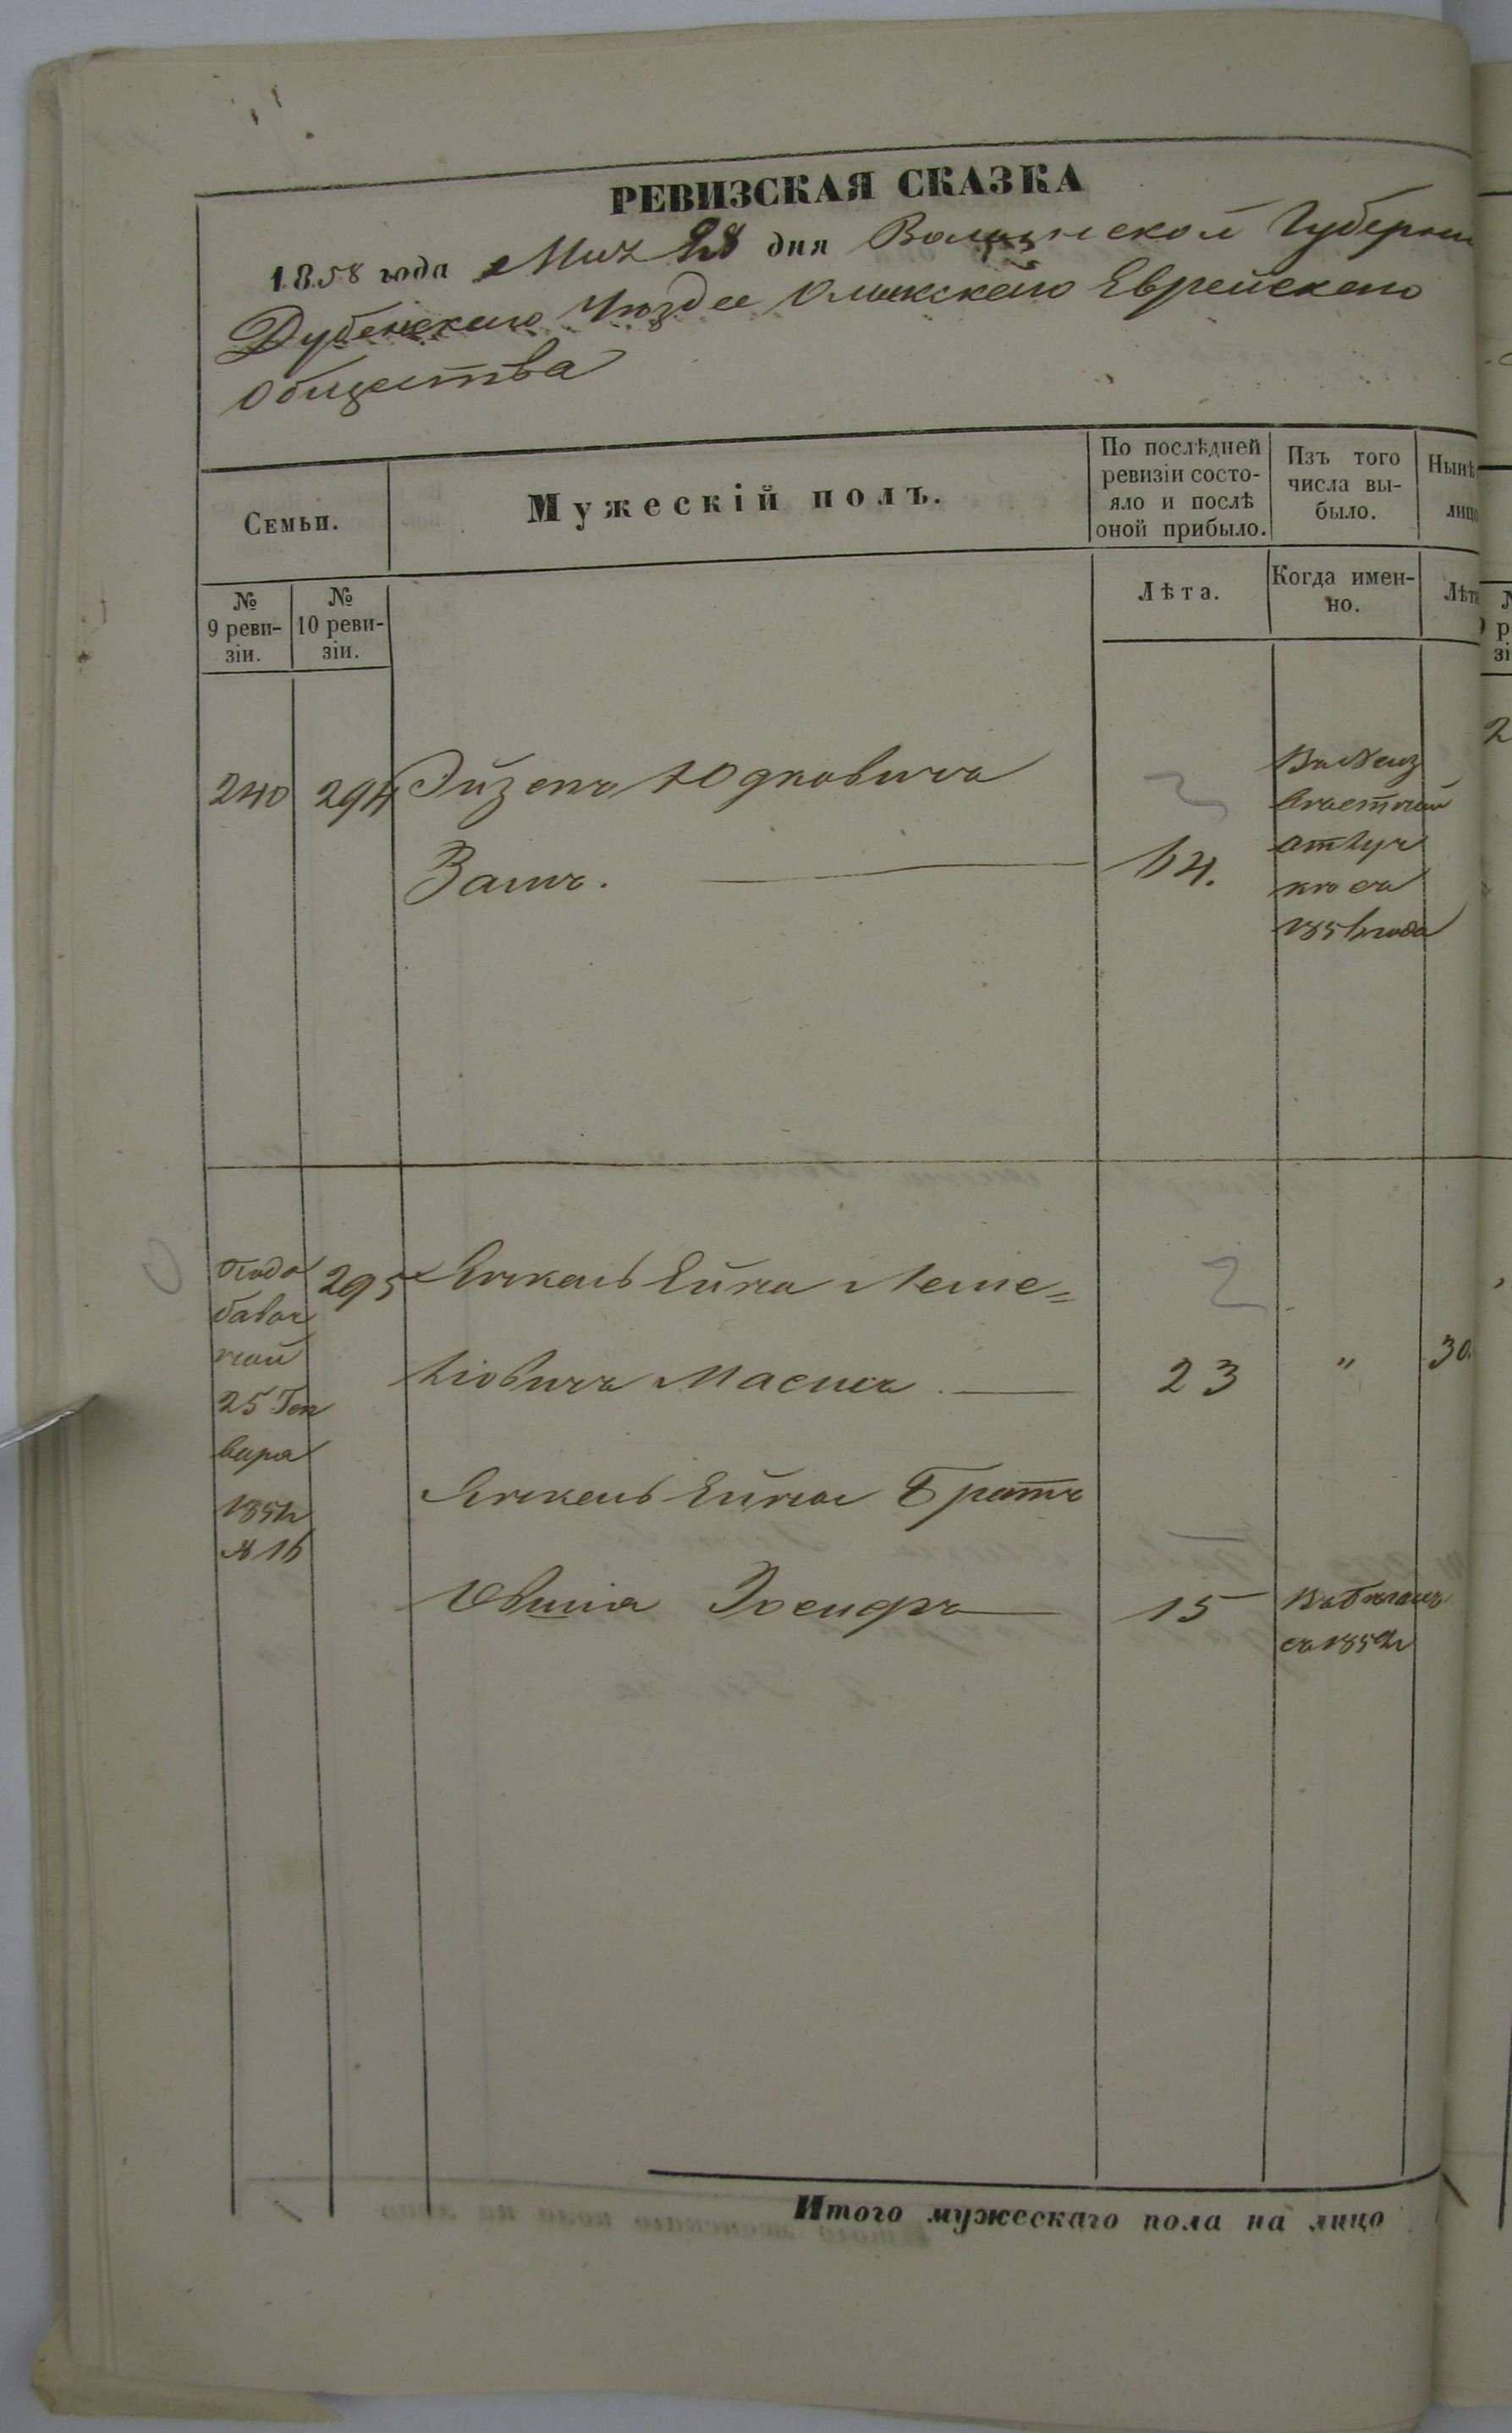 РЕВИЗСКАЯ СКАЗКА
1858 года Мая 28 дня Волынской Губернии
Дубенскаго Уѣзда Олыкскаго Еврейскаго
Общества
Семьи.
Мужескій полъ.
По послѣдней ревизіи состо-
яло и послѣ оной прибыло.
Изъ того числа вы-
было.
Нынѣ
лицо
№ 9 реви-
зіи.
№ 10 реви-
зіи.
Лѣта.
Когда имен-
но.
Лѣта
240 294 Эйзеръ Юдковичъ
64.
Въ неиз
вѣстной
отлуч
кѣ съ
1856 года
по до
бавоч
ной
25 Ген
вара
1851
№ 16
295 Янкель
23 " 30.
Янкель Братъ
Іосифъ 15
Въ бѣгахъ
съ 1852
Итого мужескаго пола на лицо